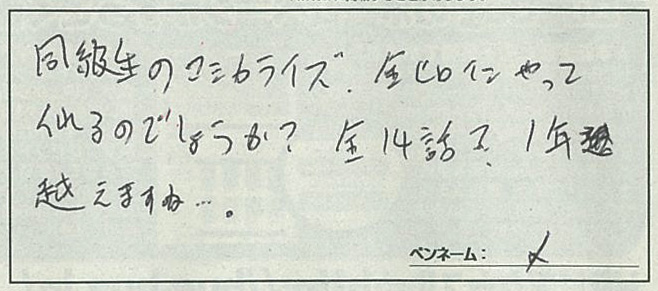 同級生のコミカライズ、全ヒロインやって
くれるのでしょうか? 全14話で、1年
越えますね…。
ペンネーム: 〆